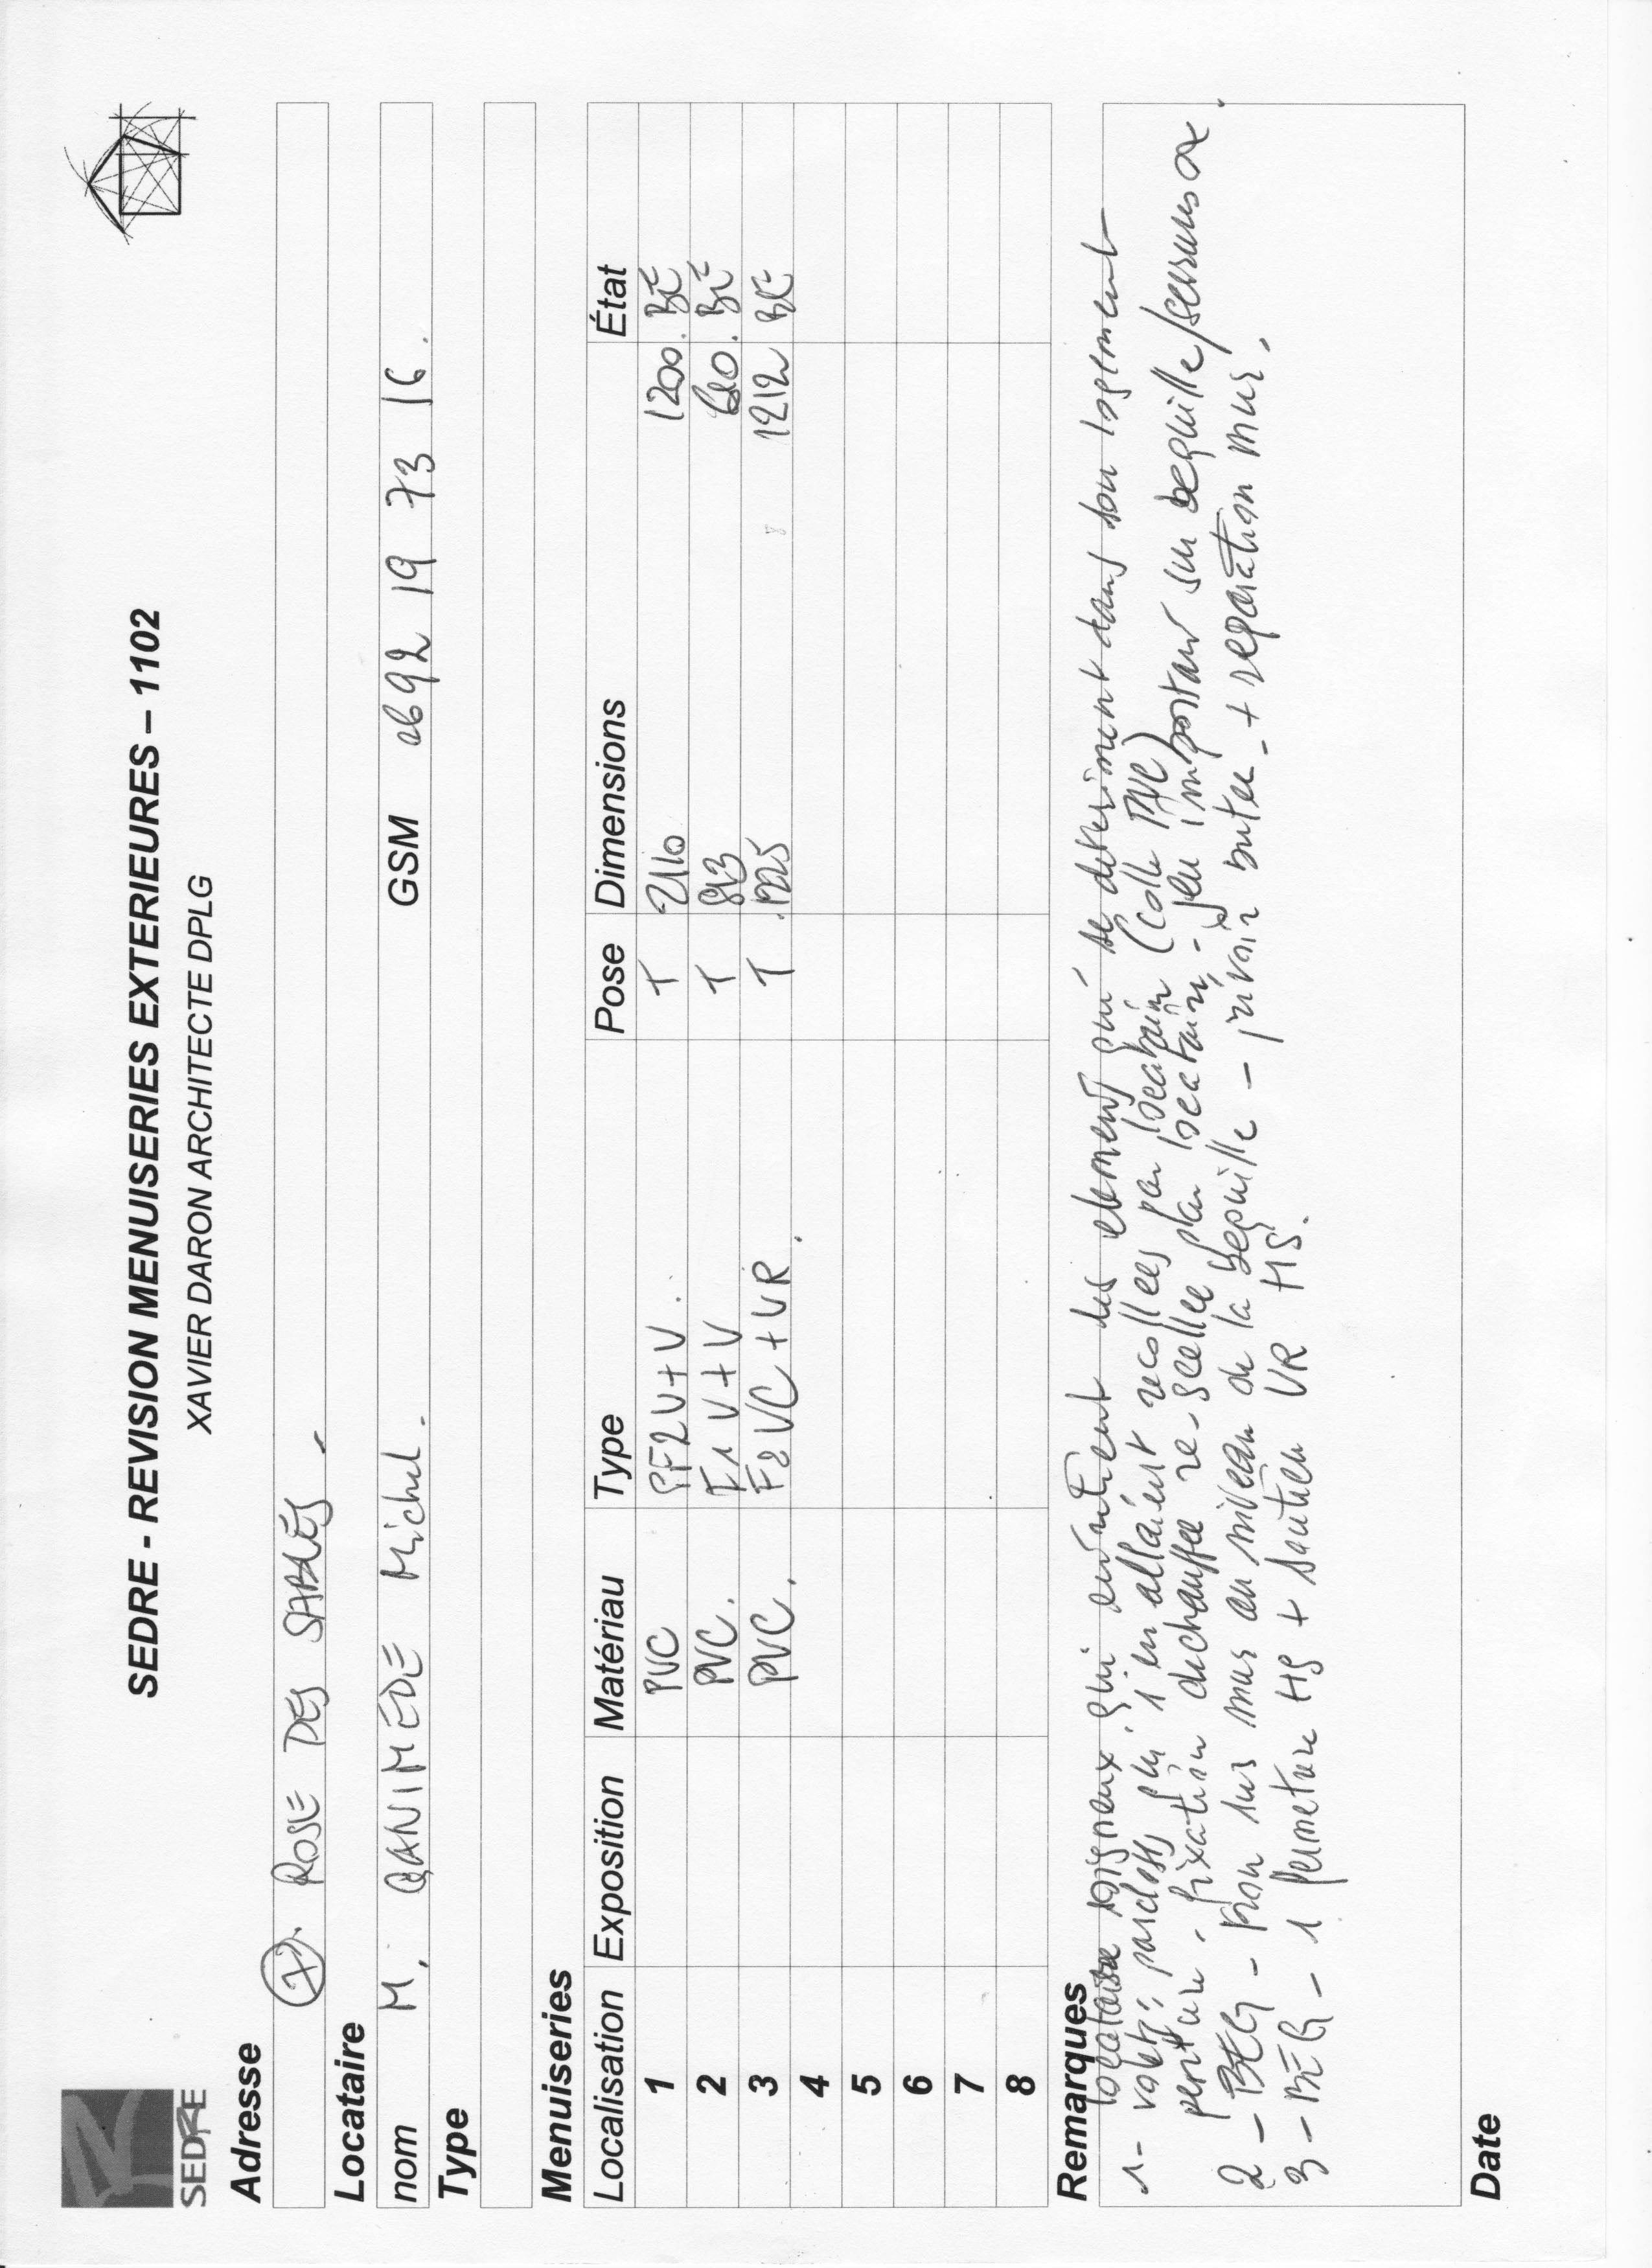 SEDRE
SEDRE - REVISION MENUISERIES EXTERIEURES – 1102
XAVIER DARON ARCHITECTE DPLG
Adresse
ROSE DES SABLES
Locataire
nom M. GANIMEDE Michel. GSM 0692 19 73 16.
Type
Menuiseries
Localisation Exposition Matériau Type Pose Dimensions État
1 PVC PF2V+V. T 2110 1200. BE
2 PVC. F1V+V T 813 610. BE
3 PVC. F2VC+VR. T 1225 1212 BE
4
5
6
7
8
Remarques
locataire soigneux qui entretient des elements qui se deteriorent dans son logement
1- volets: parcloses qui s'en allaient recollees par locataire (colle PVC)
penture - fixation dechauffee re-scellee par locataire, - jeu important sur bequille/serrures
2 - BEG - trou sur mur au niveau de la bequille - prevoir butee - + reparation mur.
3 - BEG - 1 fermeture HS + soutien VR HS.
Date